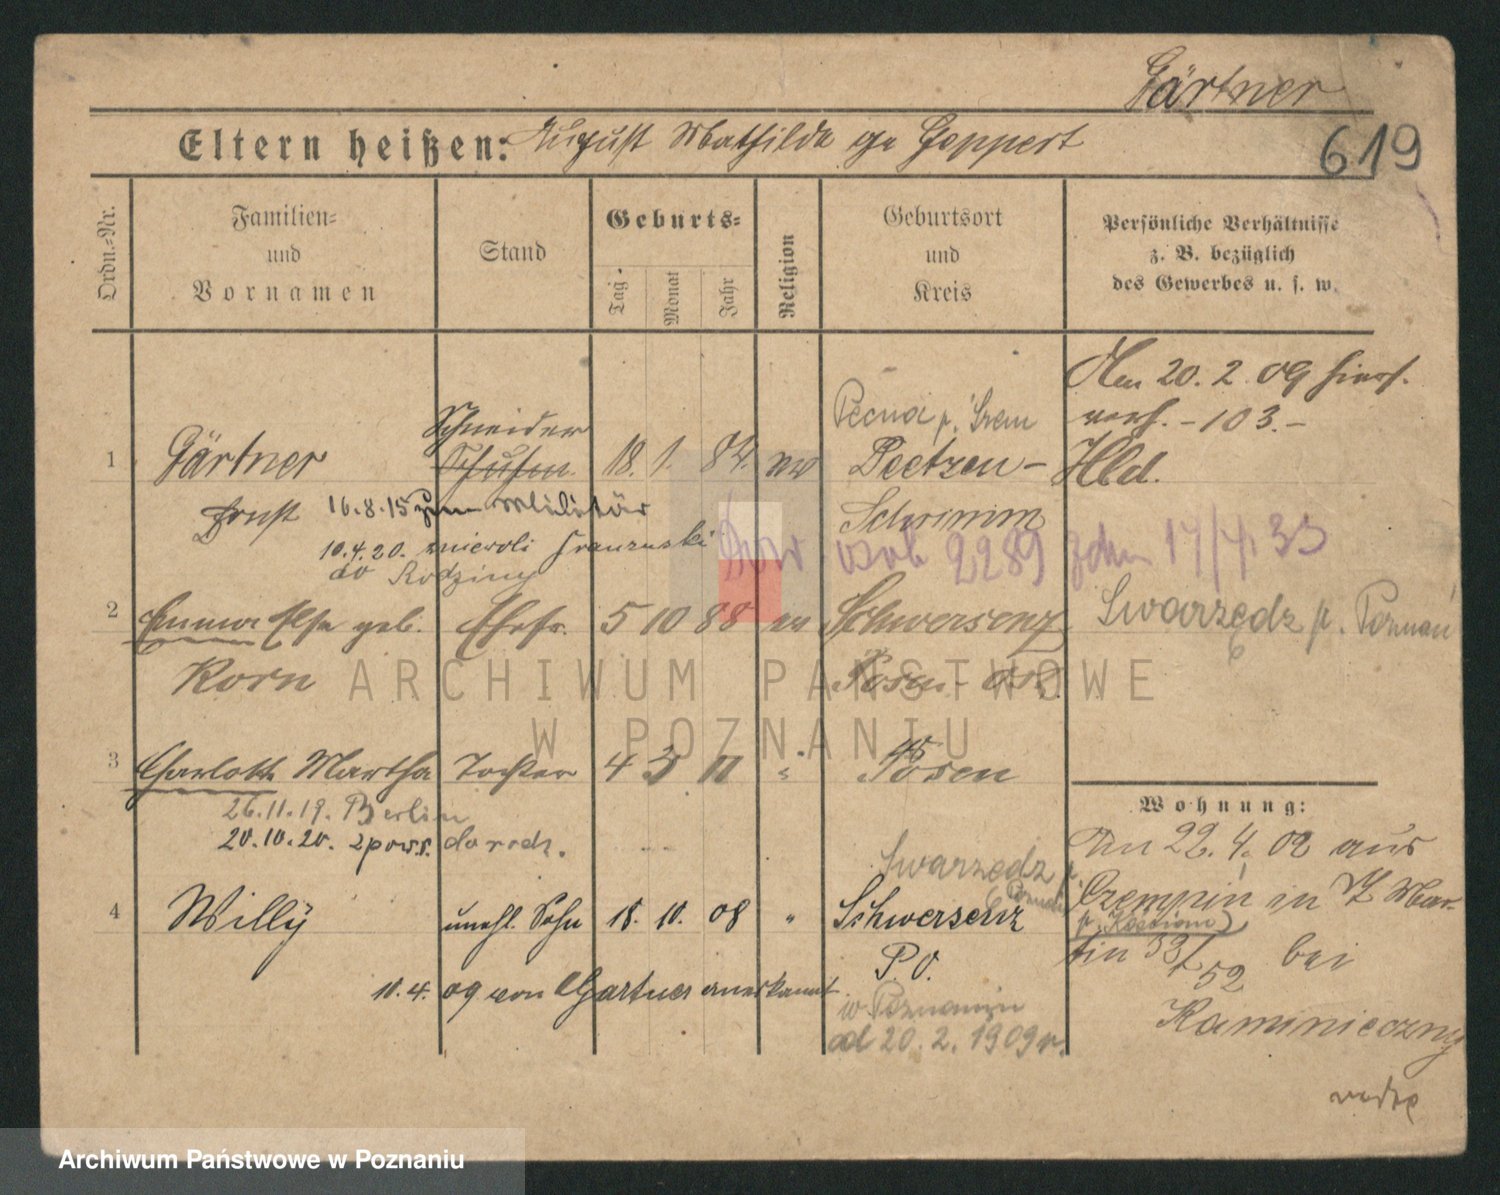 Gärtner
Eltern heißen: August Mathilde ge Geppert
619
Ordn.-Nr.
Familien-
und
Vornamen
Stand
Geburts-
Tag
Monat
Jahr
Religion
Geburtsort
und
Kreis
Persönliche Verhältnisse
z. B. bezüglich
des Gewerbes u. s. w.
Den 20. 2. 09 hierh.
verh. - 103. -
Hld.
Schneider
1 Gärtner 18. 1. 84. ev
Pecna p. Śrem
Peetzen -
Schrimm
Ernst 16.8.15 zum Militär
10.4.20. niewoli francuski
do Rodziny
Dow. osob 2289 zdn 17/4 33
2 Emma Else geb. Ehefr. 5 10 88 ev Schwersenz
Swarzędz p. Poznań
Korn Posen Ost
3 Charlotte Martha Tochter 4 3 11 " Posen
26.11.19. Berlin
20.10.20. zpow. do rodz.
Wohnung:
Am 22. 4. 09 aus
Czempin in
p. Kościan
bei
Kaminieczny
Swarzędz p.
Poznań
4 Willy unehl. Sohn 18. 10. 08 " Schwersenz
P. O.
10. 4. 09 von Gärtner anerkannt.
w Poznaniu
od 20. 2. 1909 r.
ARCHIWUM PAŃSTWOWE
W POZNANIU
Archiwum Państwowe w Poznaniu